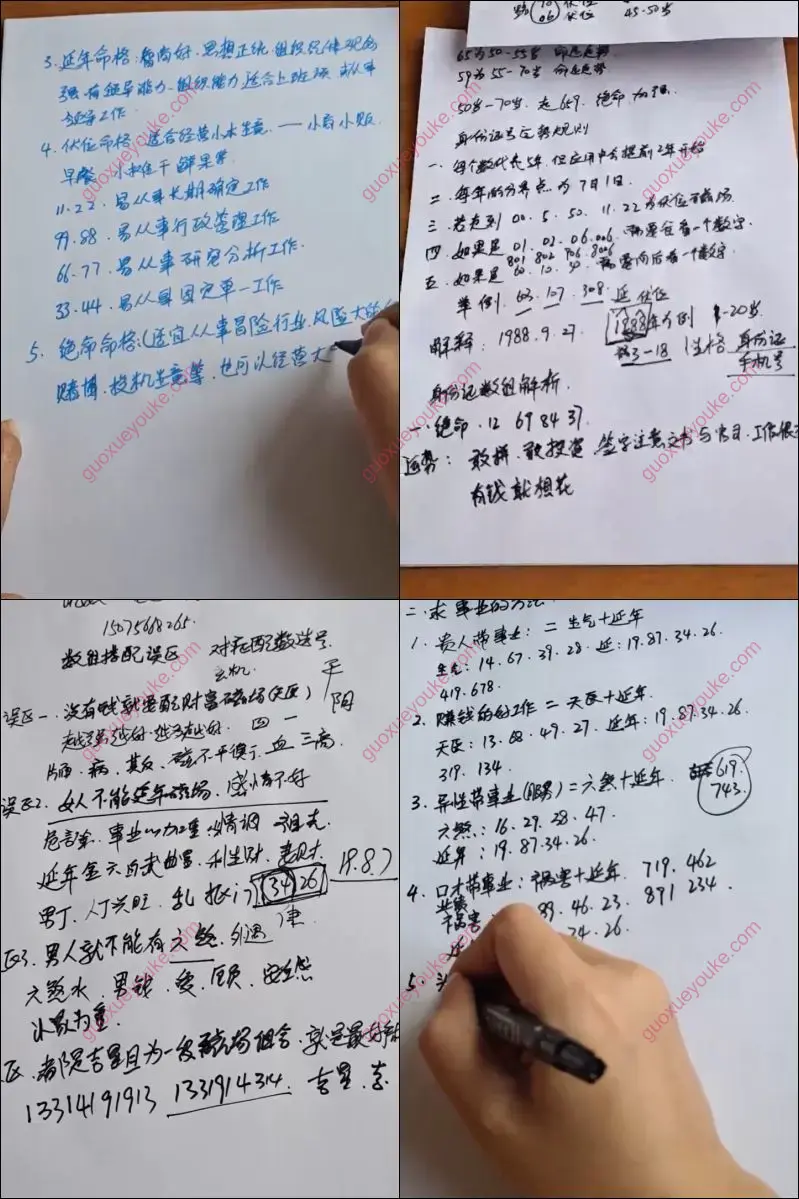 3. 延年命格：智商好．思想正统．组织纪律观念
强．有领导能力．组织能力 适合上班族
领导工作．
4. 伏位命格．适合经营小本生意．——小商小贩
早餐 鲜果等
11.22．易从事长期稳定工作
99.88．易从事行政管理工作
66.77．易从事研究分析工作．
33.44．易从事固定单一工作
5. 绝命命格：(适宜从事冒险行业．风险大的
赌博．投机生意等．也可以经营大
伏位 45-50岁
65为50-55岁 命运走势
59为55-70岁 命运走势
50岁-70岁．走659．绝命加强．
身份证号运势规则
一．每个数代表5年．但应用中会提前2年开始
二．每年的分界点为7月1日．
三．若走到00．5．50．11．22为伏位磁场
四．如果是01．02．06．006．需要往前看一个数字．
801 802 706 806
五．如果是60．10．需要向后看一个数字．
举例．603．107．308．延 伏位
解释：1988.9.27． 1988年为例 1-20岁
3-18 1 性格 身份证
手机号
身份证数组解析．
一．绝命．12 69 84 37．
运势：敢拼．敢投资．签字注意文书与官司．工作很
有钱就想花
15075668265．
数组搭配误区 对症配数选号
玄机．
平
阴
误区一．没有钱就要配财富磁场(天医)
越强越好 越多越好． 四一
病．其反．磁不平衡．血三高．
误区2．女人不能延年磁场．感情不好
危言 事业心加重．少情调
延年金六白武曲星．利生财．
男丁．人丁兴旺． 34 26 19.8.7
区3．男人就不能有六煞．外遇
六煞水．男钱．
以家为重．
区．都是吉星且为一级磁场组合．就是最好
13314191913 1331914314．吉星．
二．求事业的方法．
1. 贵人带事业：= 生气+延年
生气：14.67.39.28．延：19.87.34.26.
419.678.
2. 赚钱的好工作 = 天医+延年．
天医：13.68.49.27．延年：19.87.34.26.
319．134.
3. 异性带事业(服男)=六煞+延年． 619.
743.
六煞：16.29.28.47.
延年：19.87.34.26.
4. 口才带事业：祸害+延年． 719．462
祸害 89.46.23．891 234．
34.26.
5.
guoxueyouke.com